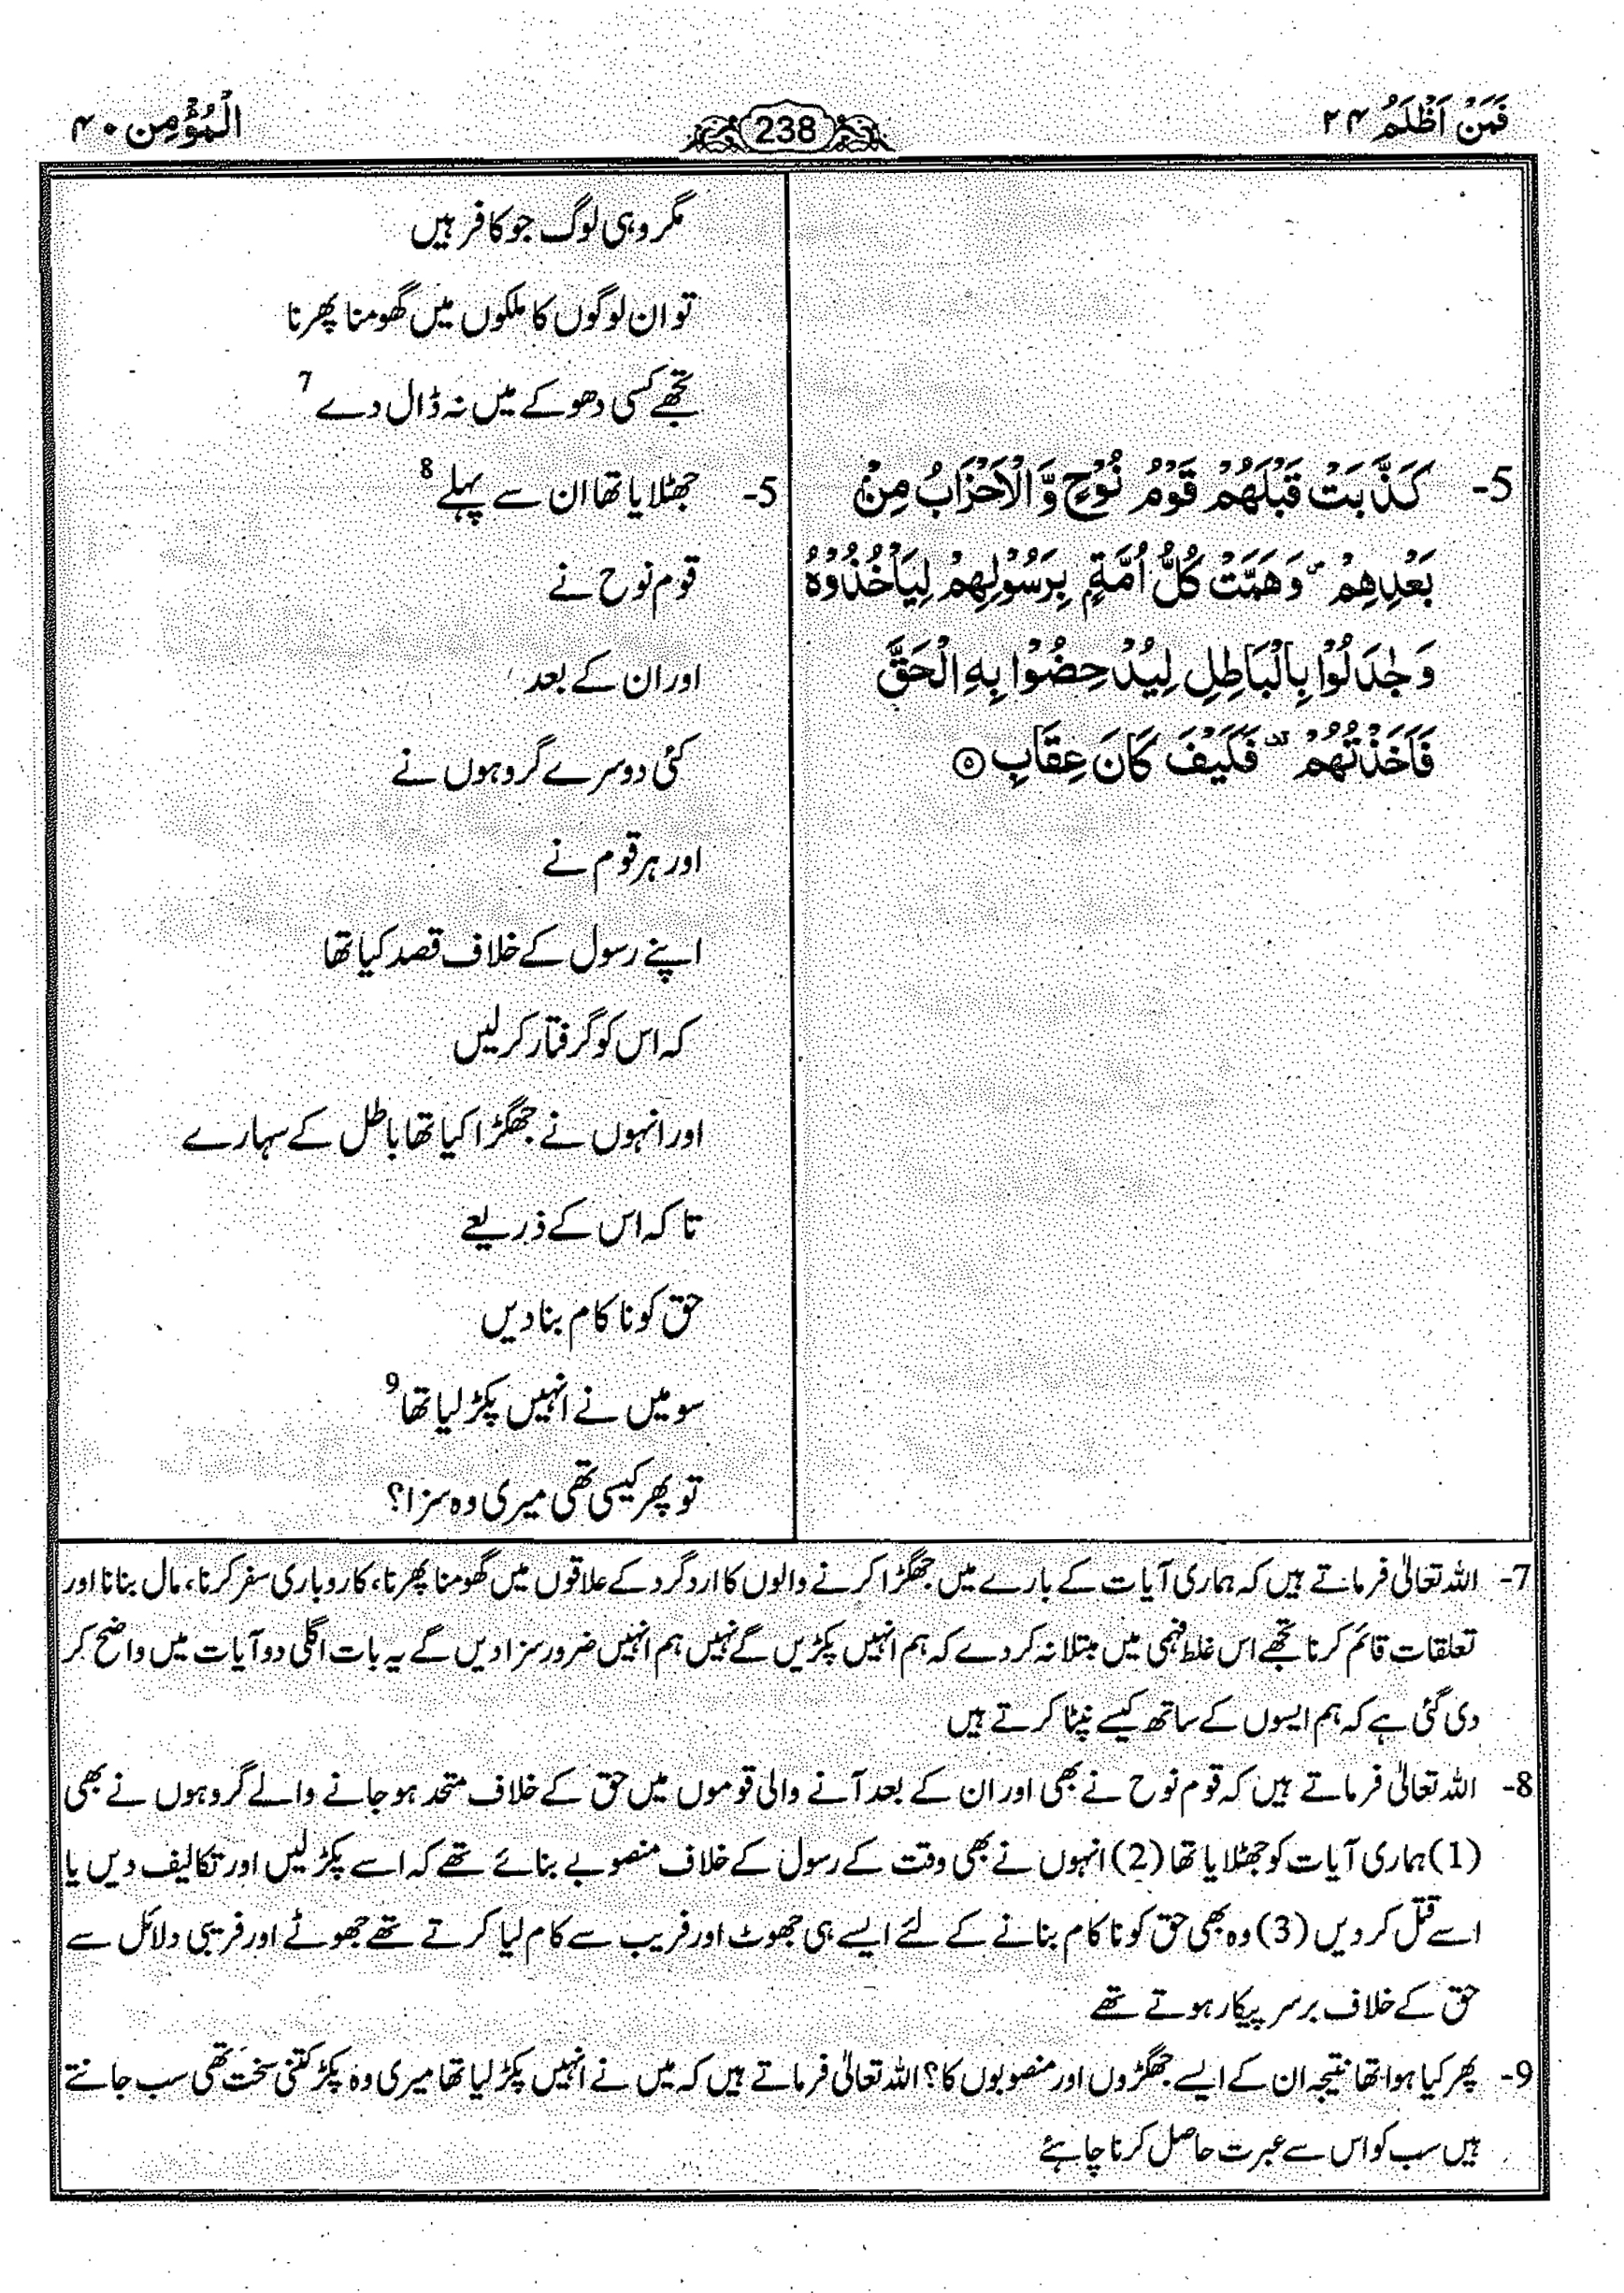 فَمَنْ اَظْلَمُ ۲۴
238
الْمُؤْمِن ۴۰
5- كَذَّبَتْ قَبْلَهُمْ قَوْمُ نُوْحٍ وَّالْاَحْزَابُ مِنْۢ
بَعْدِهِمْ ۪ وَهَمَّتْ كُلُّ اُمَّةٍۭ بِرَسُوْلِهِمْ لِيَاْخُذُوْهُ
وَجٰدَلُوْا بِالْبَاطِلِ لِيُدْحِضُوْا بِهِ الْحَقَّ
فَاَخَذْتُهُمْ ۣ فَكَيْفَ كَانَ عِقَابِ ۝۵
مگر وہی لوگ جو کافر ہیں
تو ان لوگوں کا ملکوں میں گھومنا پھرنا
تجھے کسی دھوکے میں نہ ڈال دے 7
5- جھٹلایا تھا ان سے پہلے 8
قوم نوح نے
اور ان کے بعد
کئی دوسرے گروہوں نے
اور ہر قوم نے
اپنے رسول کے خلاف قصد کیا تھا
کہ اس کو گرفتار کر لیں
اور انہوں نے جھگڑا کیا تھا باطل کے سہارے
تاکہ اس کے ذریعے
حق کو ناکام بنا دیں
سو میں نے انہیں پکڑ لیا تھا 9
تو پھر کیسی تھی میری وہ سزا؟
7- اللہ تعالیٰ فرماتے ہیں کہ ہماری آیات کے بارے میں جھگڑا کرنے والوں کا ارد گرد کے علاقوں میں گھومنا پھرنا، کاروباری سفر کرنا، مال بنانا اور
تعلقات قائم کرنا تجھے اس غلط فہمی میں مبتلا نہ کر دے کہ ہم انہیں پکڑیں گے نہیں ہم انہیں ضرور سزا دیں گے یہ بات اگلی دو آیات میں واضح کر
دی گئی ہے کہ ہم ایسوں کے ساتھ کیسے نپٹا کرتے ہیں
8- اللہ تعالیٰ فرماتے ہیں کہ قوم نوح نے بھی اور ان کے بعد آنے والی قوموں میں حق کے خلاف متحد ہو جانے والے گروہوں نے بھی
(1) ہماری آیات کو جھٹلایا تھا (2) انہوں نے بھی وقت کے رسول کے خلاف منصوبے بنائے تھے کہ اسے پکڑ لیں اور تکالیف دیں یا
اسے قتل کر دیں (3) وہ بھی حق کو ناکام بنانے کے لئے ایسے ہی جھوٹ اور فریب سے کام لیا کرتے تھے جھوٹے اور فریبی دلائل سے
حق کے خلاف برسر پیکار ہوتے تھے
9- پھر کیا ہوا تھا نتیجہ ان کے ایسے جھگڑوں اور منصوبوں کا؟ اللہ تعالیٰ فرماتے ہیں کہ میں نے انہیں پکڑ لیا تھا میری وہ پکڑ کتنی سخت تھی سب جانتے
ہیں سب کو اس سے عبرت حاصل کرنا چاہئے